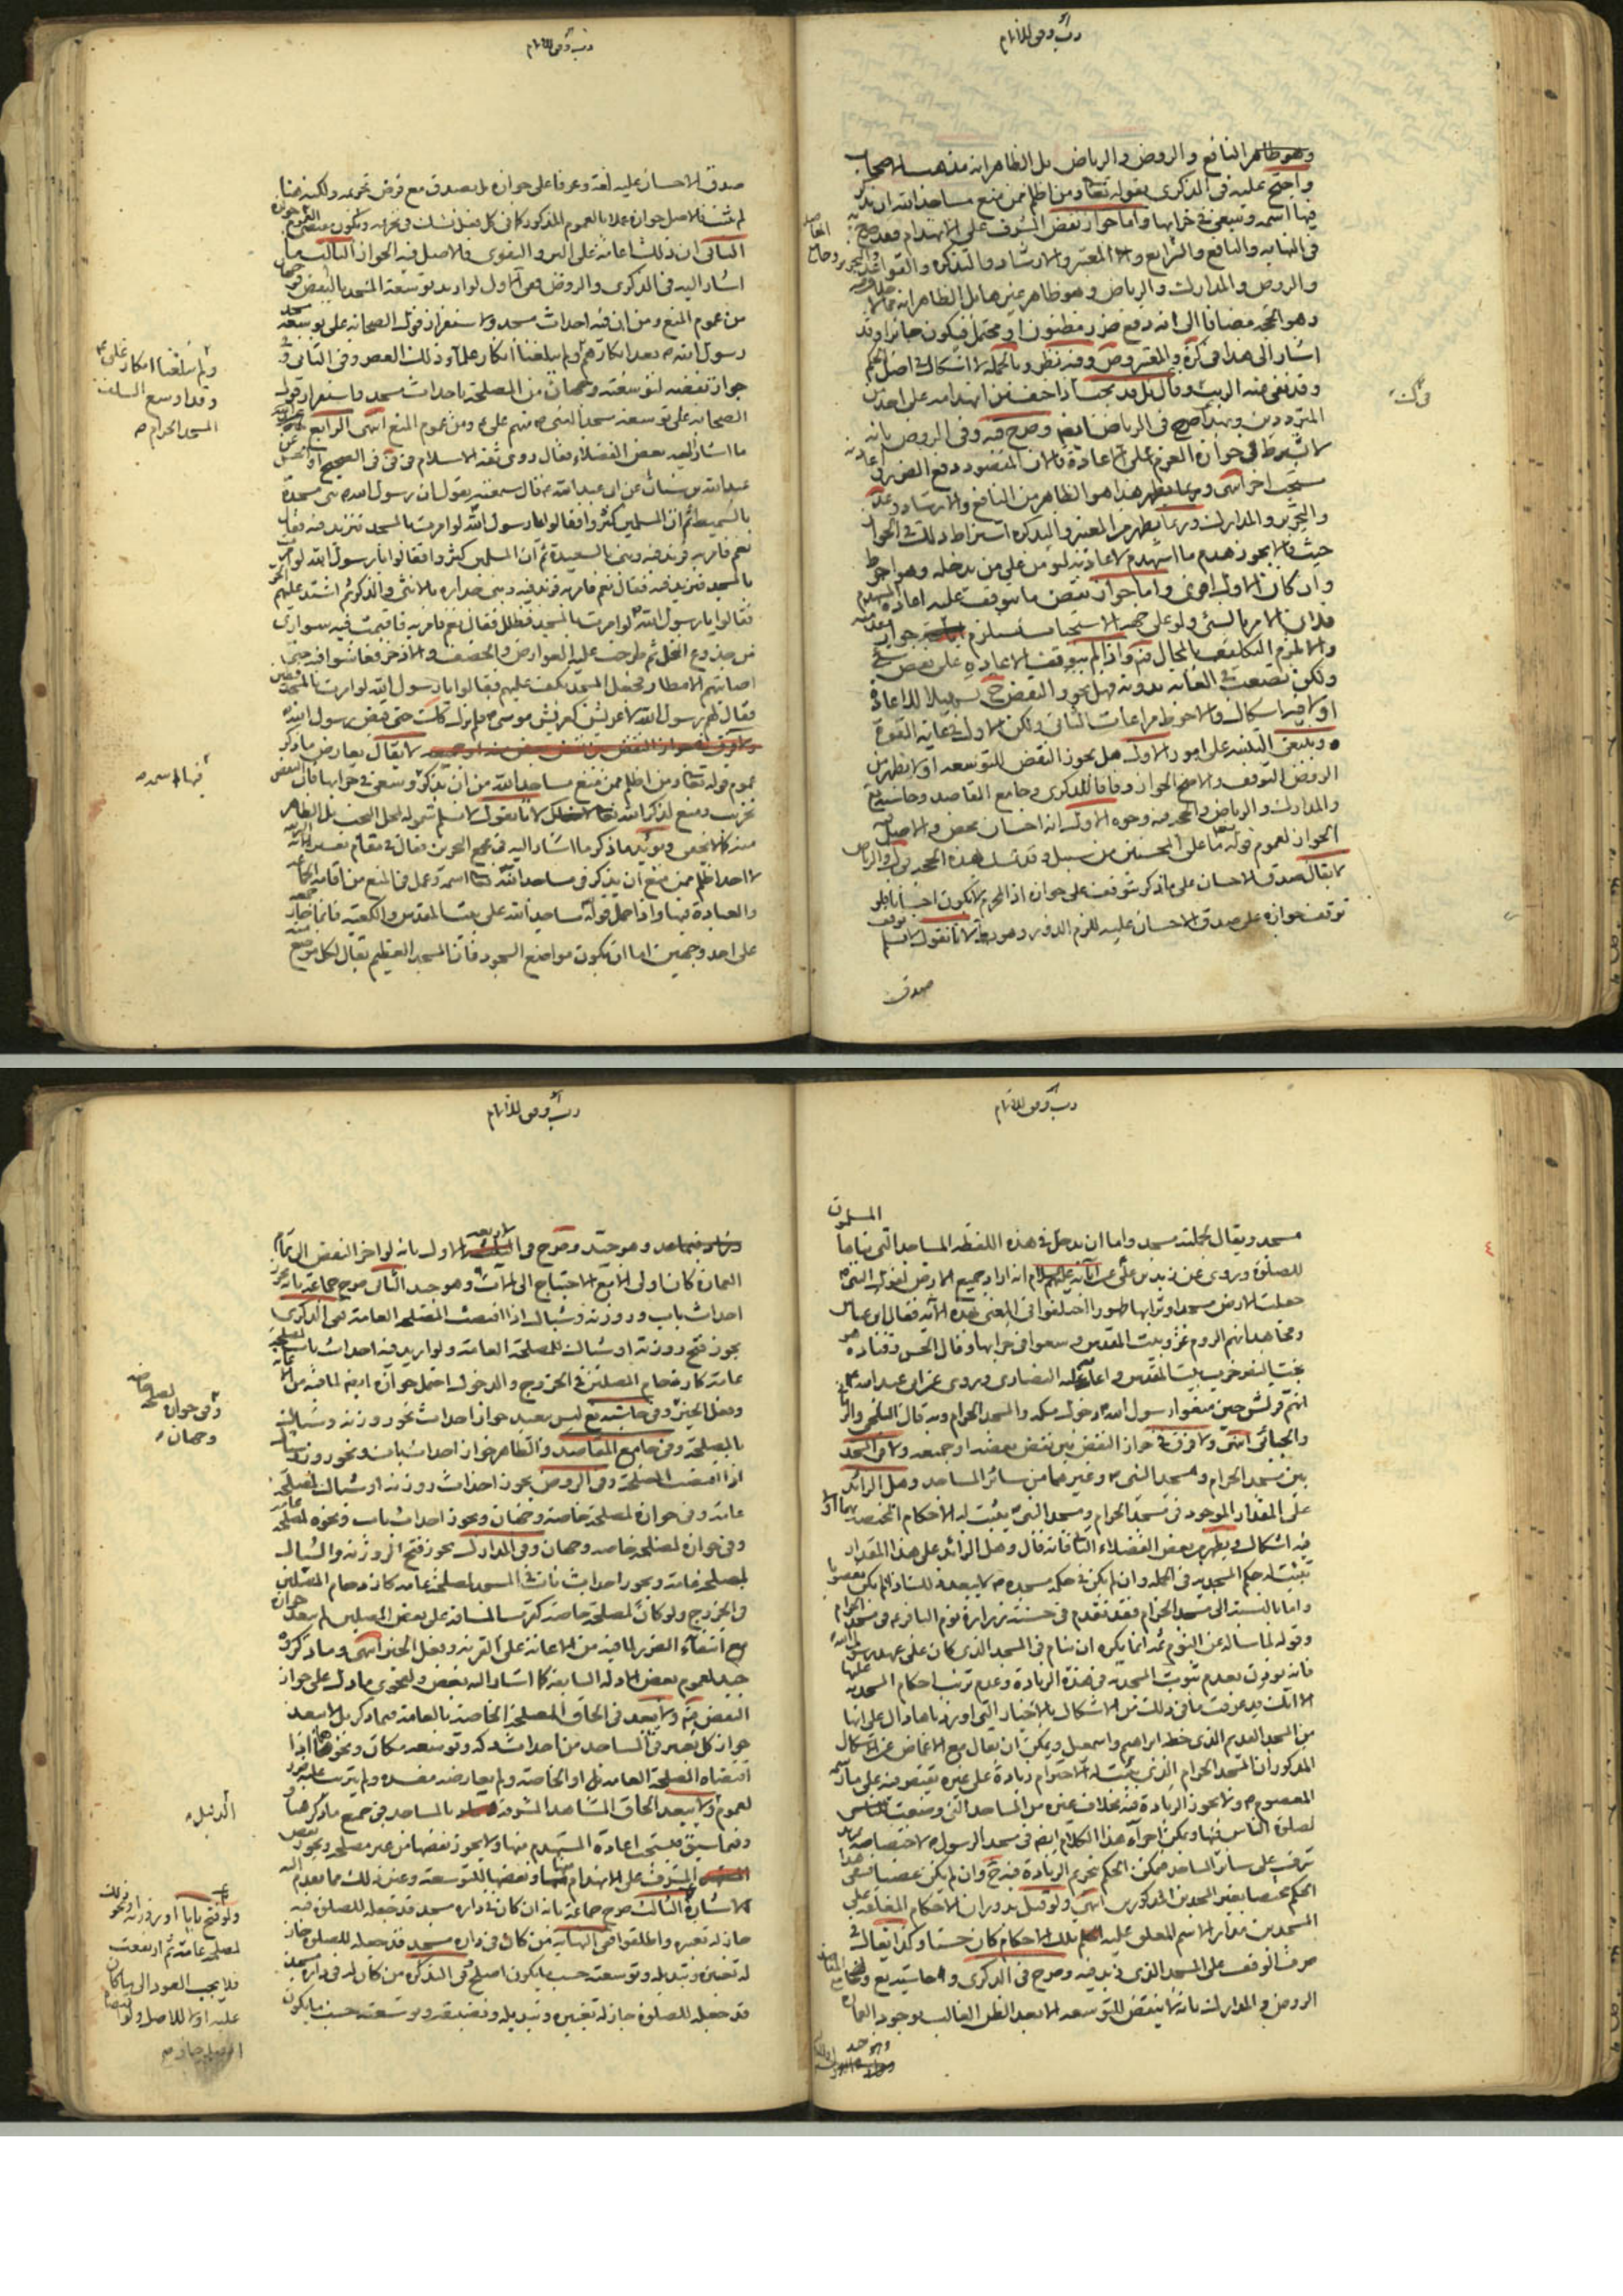 رب وفق للاتمام
وهو ظاهر النافع والروض والرياض بل الظاهر انه مذهب الاصحاب
واحتج عليه في الذكرى بقوله تعالى ومن اظلم ممن منع مساجد الله ان يذكر
فيها اسمه وسعى في خرابها واما جواز نقض المشرف على الانهدام فقد صرح به
في النهاية والنافع والشرايع والمعتبر والارشاد والتذكرة والقواعد
والروض والمدارك والرياض وهو ظاهر غيرها بل الظاهر انه مما لا
وهو الحجة مضافا الى انه دفع ضرر مظنون او محتمل فيكون جائزا وقد
اشار الى هذا في كره والمعتبر وض وفيه نظر وبالجملة لا اشكال في اصل الحكم
وقد نفى عنه الريب وقال بل قد يجب اذا خيف من انهدامه على احد من
المترددين وبهذا صرح في الرياض ايضا وصرح فيه وفي الروض بانه
لا يشترط في جوازه العزم على الاعادة لان المقصود دفع الضرر
مستحب اخر انتهى وربما يظهر هذا هو الظاهر من النافع والارشاد وعد
والتحرير والمدارك وربما يظهر من المعتبر والتذكرة اشتراط ذلك في الجواز
حيث قالا يجوز هدم ما استهدم لاعادته ليؤمن على من يدخله وهو احوط
وان كان الاول اقوى واما جواز نقض ما يتوقف عليه اعادة المستهدم
فلان الامر بالشئ ولو على جهة الاستحباب يستلزم جواز
والا لزم التكليف بالمحال واذا لم يتوقف الاعادة على نقض شئ
ولكن تضعف الغاية بدونه فهل يجوز النقض ح تحصيلا للاعادة
او لا فيه اشكال والاحوط مراعات الثاني ولكن الاول في غاية القوة
وينبغي التنبيه على امور الاول هل يجوز النقض للتوسعة او لا يظهر من
الروض التوقف والاصح الجواز وفاقا للذكرى وجامع المقاصد وحاشية يع
والمدارك والرياض والحجة فيه وجوه الاول انه احسان محض والاصل
الجواز لعموم قوله تعالى ما على المحسنين من سبيل وقد تمسك بهذه الحجة في ك والرياض
لا يقال صدق الاحسان على ما ذكر يتوقف على جوازه اذ المحرم لا يكون احسانا فلو
توقف جوازه على صدق الاحسان عليه للزم الدور وهو بط لانا نقول لا نسلم توقف
صدق
رب وفق للاتمام
صدق الاحسان عليه لغة وعرفا على جوازه بل يصدق مع فرض تحريمه ولكنه هنا
لم يثبت فالاصل جوازه عملا بالعموم المذكور كما في كل فعل نشك في تحريمه
الثاني ان ذلك اعانة على البر والتقوى فالاصل فيه الجواز الثالث ما
اشار اليه في الذكرى والروض ففي الاول لو اريد توسعة المسجد بالنقض
من عموم المنع ومن ان فيه احداث مسجد ولاستقرار قول الصحابة على توسعة مسجد
رسول الله ص بعد انكارهم ولم يبلغنا انكار علماء ذلك العصر وفي الثاني وفي
جواز نقضه لتوسعته وجهان من المصلحة باحداث مسجد واستقرار قول
الصحابة على توسعة مسجد النبي ص منهم علي ع ومن عموم المنع انتهى الرابع
ما اشار اليه بعض الفضلاء فقال روى ثقة الاسلام في في في الصحيح او الحسن
عبد الله بن سنان عن ابي عبد الله ع قال سمعته يقول ان رسول الله ص بنى مسجده
بالسميط ثم ان المسلمين كثروا فقالوا يا رسول الله لو امرت بالمسجد فزيد فيه فقال
نعم فامر به فزيد فيه وبنى بالسعيدة ثم ان المسلمين كثروا فقالوا يا رسول الله لو امرت
بالمسجد فزيد فيه فقال نعم فامر به فزيد فيه وبنى جداره بالانثى والذكر ثم اشتد عليهم الحر
فقالوا يا رسول الله لو امرت بالمسجد فظلل فقال نعم فامر به فاقيمت فيه سواري
من جذوع النخل ثم طرحت عليه العوارض والخصف والاذخر فعاشوا فيه حتى
اصابتهم الامطار فجعل المسجد يكف عليهم فقالوا يا رسول الله لو امرت بالمسجد فطين
فقال لهم رسول الله لا عريش كعريش موسى ع فلم يزل كذلك حتى قبض رسول الله ص
لا يقال يعارض ما ذكر
عموم قوله تعالى ومن اظلم ممن منع مساجد الله من ان يذكر وسعى في خرابها فان النقض
تخريب ومنع لذكر الله لانا نقول لا نسلم شموله لمحل البحث بل الظاهر
منه كما لا يخفى ويؤيد ما ذكر ما اشار اليه في مجمع البحرين فقال في مقام تفسير الاية
لا احد اظلم ممن منع ان يذكر في مساجد الله اسمه وعمل في المنع من اقامة الجماعة
والعبادة فيها واذا حمل قوله مساجد الله على بيت المقدس والكعبة فانما جاز جمعه
على احد وجهين اما ان يكون مواضع السجود فان المسجد العظيم يقال لكل موضع منه
ولم يبلغنا انكار علي ع
وقد اوسع السلف
المسجد الحرام صح
فيها اسمه صح
رب وفق للاتمام
مسجد ويقال لجملته مسجد واما ان يدخل في هذه اللفظة المساجد التي بناها المسلمون
للصلوة وروى عن زيد بن علي عن آبائه عليهم السلام انه اراد جميع الارض لقول النبي ص
جعلت لي الارض مسجدا وترابها طهورا اختلفوا في المعنى بهذه الآية فقال ابن عباس
ومجاهد انهم الروم غزوا بيت المقدس وسعوا في خرابها وقال الحسن وقتادة هو
بخت نصر خرب بيت المقدس واعانه عليه النصارى وروى عن ابي عبد الله ع
انهم قريش حين منعوا رسول الله ص دخول مكة والمسجد الحرام وبه قال البلخي والرماني
والجبائي انتهى ولا فرق في جواز النقض بين نقض بعضه او جميعه ولا في المسجد
بين مسجد الحرام ومسجد النبي ص وغيرهما من سائر المساجد وهل الزائد
على المقدار الموجود في مسجد الحرام ومسجد النبي يثبت له الاحكام المختصة بهما او لا
فيه اشكال ويظهر من بعض الفضلاء الثاني فانه قال وهل الزائد على هذا المقدار
يثبت له حكم المسجدية في الجملة وان لم يكن في حكم مسجده ص لا يبعد ذلك اذا لم يكن بعصر
واما بالنسبة الى مسجد الحرام فقد تقدم في حسنة زرارة نوم الباقر ع في مسجد الحرام
وقوله لما سأله عن النوم ثمة انما يكره ان ينام في المسجد الذي كان على عهد رسول الله
فانه يؤذن بعدم ثبوت المسجدية في هذه الزيادة وعدم ترتب احكام المسجدية عليها
الا انك قد عرفت ما في ذلك من الاشكال بالاخبار التي اوردناها دال على انها
من المسجد القديم الذي خطه ابراهيم واسمعيل ويمكن ان يقال مع الاغماض عن الاشكال
المذكور ان المسجد الحرام الذي يثبت له الاحترام زيادة على غيره يقتصر فيه على ما رسمه
المعصوم ع ولا يجوز الزيادة فيه بخلاف غيره من المساجد التي وضعت للناس
لصلوة الناس فيها ويمكن اجراء هذا الكلام ايضا في مسجد الرسول ص لاختصاصه بمزيد
شرف على سائر المساجد فيمكن الحكم بتحريم الزيادة فيه ح وان لم يكن غصبا فيبقى هذا
الحكم مختصا بغير المسجدين المذكورين انتهى ولو قيل بدوران الاحكام المتعلقة على
المسجدين مدار الاسم المعلق عليه تلك الاحكام كان حسنا وكذا يقال في
صرف الوقف على المسجد الذي زيد فيه وصرح في الذكرى وحاشية يع وجامع المقاصد
الروض والمدارك بانه لا ينقض للتوسعة الا بعد الظن الغالب بوجود العمارة
رب وفق للاتمام
وهو جيد وصرح في الاول بانه لو اخر النقض الى تمام
العمارة كان اولى الا مع الاحتياج الى الآلات وهو جيد الثاني صرح جماعة بانه يجوز
احداث باب وروزنة وشباك اذا اقتضت المصلحة العامة ففي الذكرى
يجوز فتح روزنة او شباك للمصلحة العامة ولو اريد فيه احداث باب لمصلحة
عامة كازدحام المصلين في الخروج والدخول احتمل جوازه ايضا لما فيه من الاعانة
وفعل الخير وفي حاشية يع ليس ببعيد جواز احداث نحو روزنة وشباك
بالمصلحة وفي جامع المقاصد والظاهر جواز احداث باب ونحو روزنة وشباك
اذا اقتضت المصلحة وفي الروض يجوز احداث روزنة او شباك لمصلحة
عامة وفي جوازه لمصلحة خاصة وجهان ويجوز احداث باب ونحوه لمصلحة عامة
وفي جوازه لمصلحة خاصة وجهان وفي المدارك يجوز فتح الروزنة والشباك
لمصلحة عامة ويجوز احداث باب في المسجد لمصلحة عامة كازدحام المصلين
في الخروج ولو كان لمصلحة خاصة كقرب المسافة على بعض المصلين لم يبعد جوازه
مع انتفاء الضرر لما فيه من الاعانة على القربة وفعل الخير انتهى وما ذكروه
جيد لعموم بعض الادلة السابقة كما اشار اليه بعض ولفحوى ما دل على جواز
النقض ولا يبعد في الحاق المصلحة الخاصة بالعامة فيما ذكر بل لا يبعد
جواز كل تغيير في المساجد من احداث دكة وتوسعة مكان ونحوهما اذا
اقتضاه المصلحة العامة او الخاصة ولم يعارضه مفسدة ولم يترتب عليه ضرر
لعموم ولا يبعد الحاق المشاهد المشرفة بالمساجد في جميع ما ذكر هنا و
وفيما سبق فيستحب اعادة المستهدم منها ولا يجوز نقضها من غير مصلحة ويجوز نقض
المشرف على الانهدام منها ونقضها للتوسعة وغير ذلك مما تقدم اليه
الاشارة الثالث صرح جماعة بانه ان كان في داره مسجد قد جعله للصلوة فيه
جاز له تغييره واطلقوا ففي النهاية من كان في داره مسجد قد جعله للصلوة جاز
له تغييره وتبديله وتوسعته حسب ما يكون اصلح وفي التذكرة من كان له في داره مسجد
قد جعله للصلوة جاز له تغييره وتبديله وتضييقه وتوسعته حسب ما يكون
وفي جوازه لمصلحة خاصة
وجهان
الدليل
ولو فتح بابا او روزنة ونحو ذلك
لمصلحة عامة ثم ارتفعت
فلا يجب العود الى ما كان
عليه اولا للاصل ولو